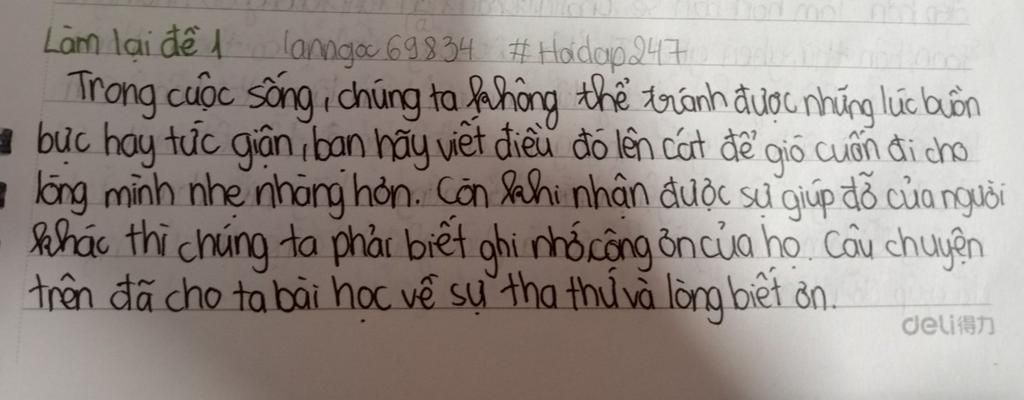 Làm lại đề 1 lanngoc69834 #Hoidap247
Trong cuộc sống, chúng ta không thể tránh được những lúc buồn
bực hay tức giận, bạn hãy viết điều đó lên cát để gió cuốn đi cho
lòng mình nhẹ nhàng hơn. Còn khi nhận được sự giúp đỡ của người
khác thì chúng ta phải biết ghi nhớ công ơn của họ. Câu chuyện
trên đã cho ta bài học về sự tha thứ và lòng biết ơn.
deli得力